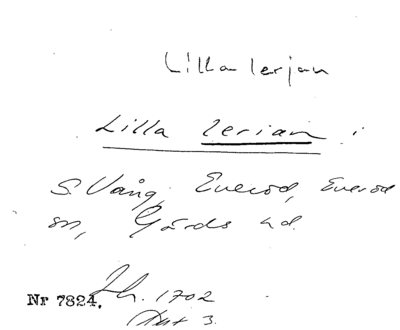 Lilla lerjan
Lilla lerian i
S. Vång, Everöd, Everöd
sn, Gärds hd.
Lh. 1702
Nr 7824.
Akt 3.